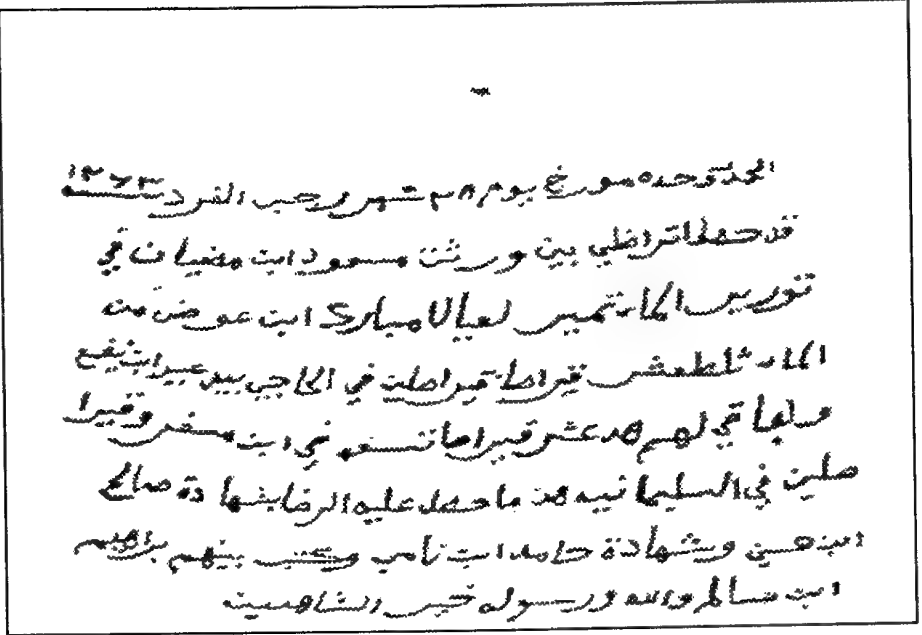 الحمد لله وحده مورخ يوم ٢٨ شهر رجب الفرد سنة ١٢٦٣
قد حصل التراضي بين ورثت مسعود ابن مضيان في
توريس الماء تميس لعيال مبارك ابن عوض من
الماء ثلطعشر قيراط قيراطين في الحاجي بيد عبيد ابن نفيع
والباقي لهم هدعشر قيراط تسعه في ابن مسفر وقيرا
طين في السليمانيه هذ ما حصل عليه الرضا بشهادة صالح
ابن حسين وشهادة حامد ابن نامي وكتب بينهم براهيم
ابن سالم والله ورسوله خير الشاهدين